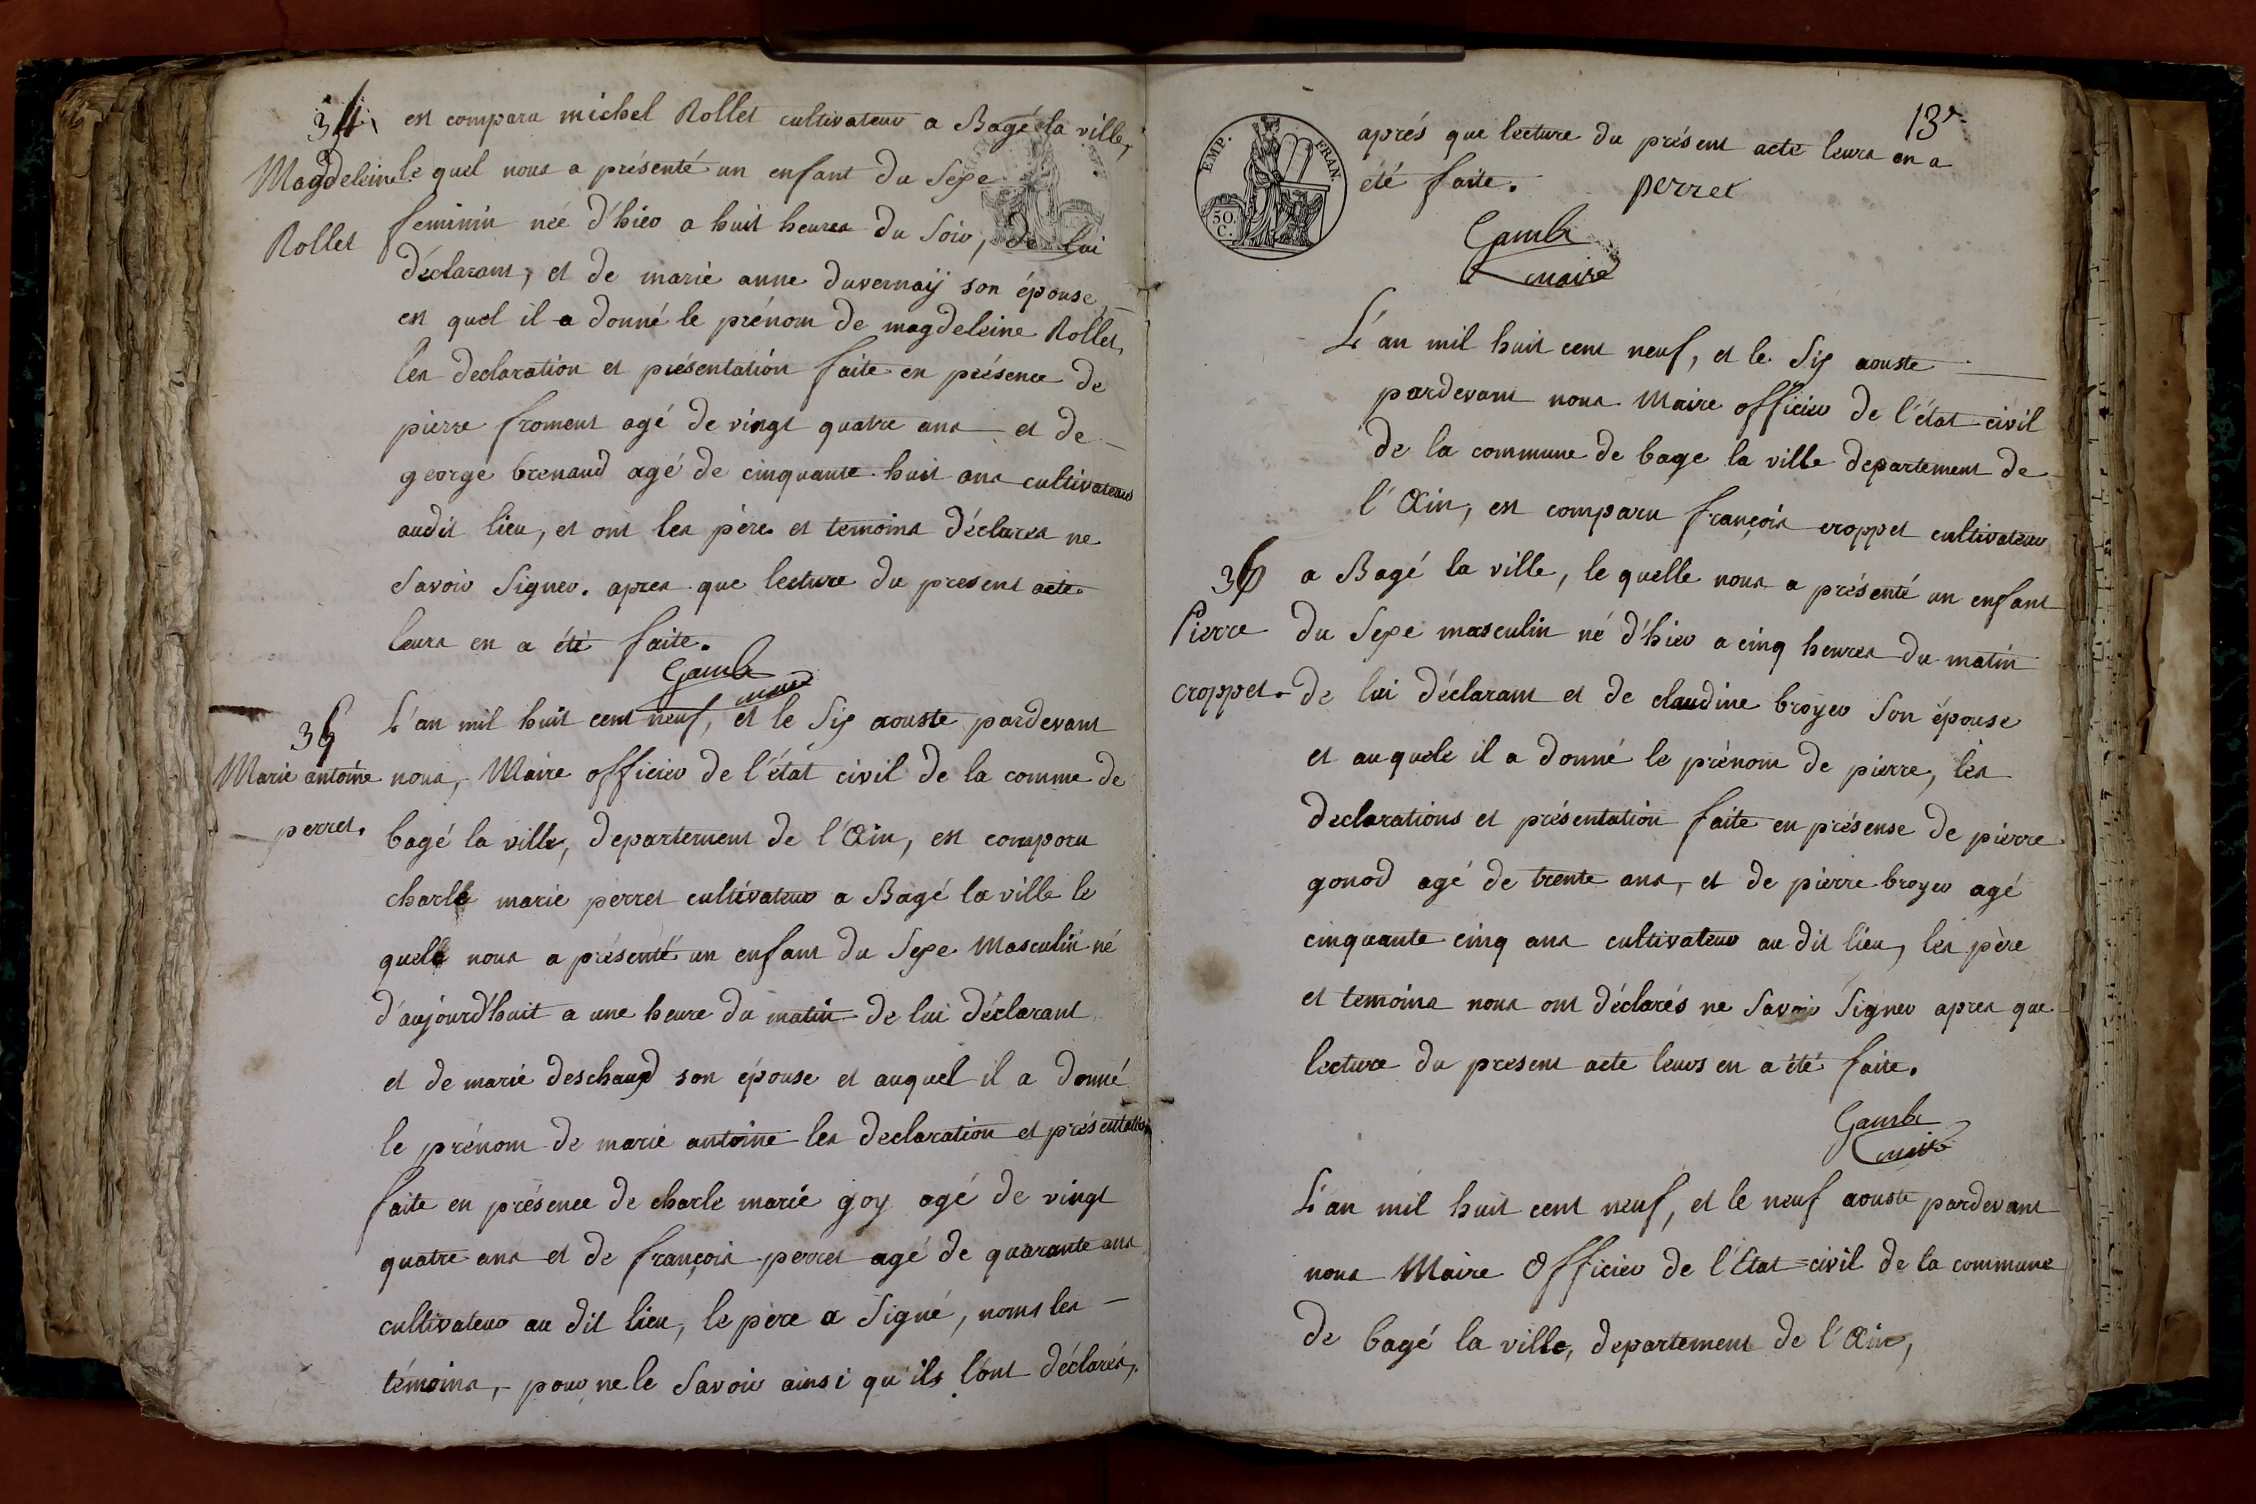 34
Magdeleine
Rollet
est comparu michel Rollet cultivateur a Bagé la ville,
le quel nous a présenté un enfant du Sexe
feminin neé d'hier a huit heures du Soir, de lui
déclarant, et de marie anne duvernaÿ son épouse,
est quel il a donné le prénom de magdeleine Rollet,
les declaration et présentation faite en présence de
pierre froment agé de vingt quatre ans et de
george brenaud agé de cinquante huit ans cultivateurs
audit lieu, et ont les père et temoins déclares ne
Savoir Signer. apres que lecture du present acte
leurs en a été faite.
Gambe
maire
35
Marie antoine
perret.
L'an mil huit cent neuf, et le Six aouste pardevant
nous, Maire officier de l'état civil de la comme de
bagé la ville, departement de l'Ain, est comparu
charle marie perret cultivateur a Bagé la ville le
quele nous a présenté un enfant du Sexe Masculin né
d'aujourd'huit a une heure du matin de lui déclarant
et de marie deschaud son épouse et auquel il a donné
le prénom de marie antoine les declaration et présentation
faite en présence de charle marie goy agé de vingt
quatre ans et de françois perret agé de quarante ans
cultivateur au dit lieu, le père a Signé, noms les
témoins, pour ne le Savoir ainsi qu'ils l'ont déclarés,
13
EMP. FRAN.
50.
C.
aprés que lecture du présent acte leurs en a
été faite.
perret
Gambe
maire
L'an mil huit cent neuf, et le Six aouste
pardevant nous Maire officier de l'état civil
de la commune de bage la ville departement de
l'Ain, est comparu françois croppet cultivateur
36
Pierre
croppet.
a Bagé la ville, le quelle nous a présenté un enfant
du Sexe masculin né d'hier a cinq heures du matin
de lui déclarant et de claudine broyer Son épouse
et au quele il a donné le prénom de pierre, les
declarations et présentation faite en présense de pierre
gonod agé de trente ans, et de pierre broyer agé
cinquante cinq ans cultivateur au dit lieu, les père
et temoins nous ont déclarés ne Savoir Signer apres que
lecture du present acte leurs en a été faite.
Gambe
maire
L'an mil huit cent neuf, et le neuf aouste pardevant
nous Maire Officier de l'Etat=civil de la commune
de bagé la ville, departement de l'Ain,